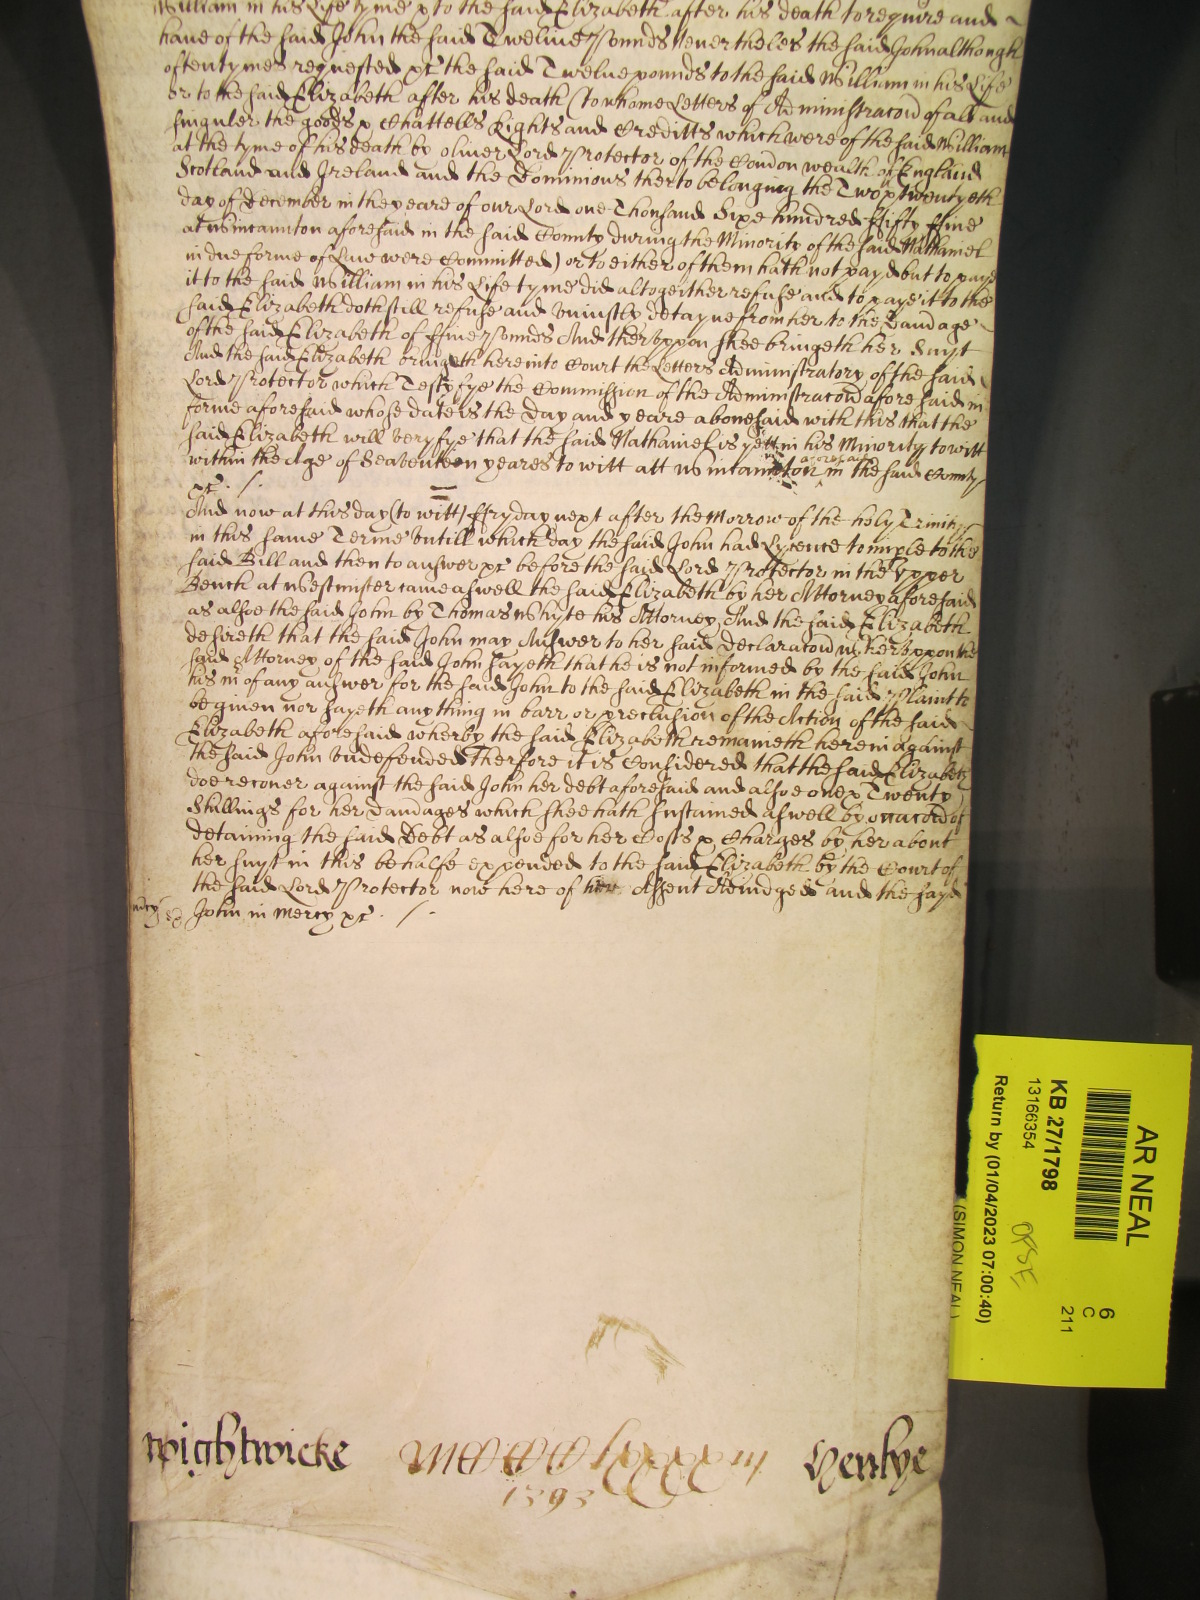 William in his Life tyme & to the said Elizabeth after his death to require and
have of the said John the said Twelve Pounds Neverthelес the said John although
oftentymes requested &c the said Twelve pounds to the said William in his Life
or to the said Elizabeth after his death (to whome Letters of Administracon of all and
singuler the goods & Chattells Rights and Creditts which were of the said William
at the tyme of his death by Oliver Lord Protector of the Common wealth of England
Scotland and Ireland and the Dominions therto belonging the Two & twentyeth
day of December in the yeare of our Lord one Thousand Sixe hundred Fifty ffive
at Wincannton aforesaid in the said County during the Minority of the said Nathaniel
in due forme of Law were Committed) or to either of them hath not payd but to paye
it to the said William in his Life tyme did altogeither refuse and to paye it to the
said Elizabeth doth still refuse and uniustly detayne from her to the Damage
of the said Elizabeth of ffive Pounds And theruppon shee bringeth her Suyt
And the said Elizabeth bringeth here into Court the Letters Administratory of the said
Lord Protector which Testyfye the Commission of the Administracon aforesaid in
forme aforesaid whose date is the day and yeare abovesaid with this that the
said Elizabeth will veryfye that the said Nathaniel is yett in his Minority to witt
within the Age of Seaventeen yeares to witt att Wincannton aforesaid in the said County
&c. /.
And now at this day (to witt) ffryday next after the Morrow of the holy Trinity
in this same Terme untill which day the said John had Lycence to imple to the
said Bill and then to answer &c before the said Lord Protector in the Upper
Bench at Westminster came aswell the said Elizabeth by her Attorney aforesaid
as alsoe the said John by Thomas Whyte his Attorney And the said Elizabeth
desireth that the said John may Answer to her said declaracon Wheruppon the
said Attorney of the said John sayeth that he is not informed by the said John
his mr of any answer for the said John to the said Elizabeth in the said Plaint to
be given nor sayeth anything in barr or preclusion of the Action of the said
Elizabeth aforesaid wherby the said Elizabeth remaineth herein against
the said John undefended Therfore it is Considered that the said Elizabeth
doe recover against the said John her debt aforesaid and alsoe one & Twenty
Shillings for her Damages which shee hath sustained aswell by occacon of
detaining the said Debt as alsoe for her Costs & Charges by her about
her suyt in this behalfe expended to the said Elizabeth by the Court of
the said Lord Protector now here of her Assent Adiudged and the sayd
mcy John in Mercy &c. /.
Wightwicke Henlye
1393
AR NEAL
6
C
211
KB 27/1798
13166354
Return by (01/04/2023 07:00:40)
(SIMON NEAL)